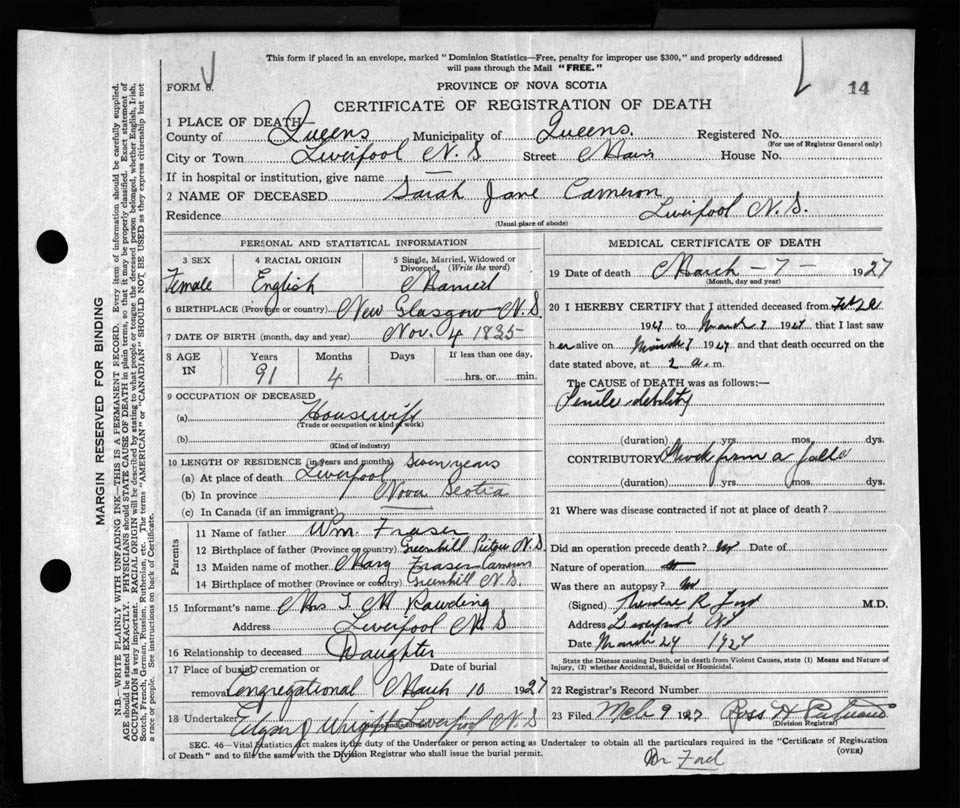 This form if placed in an envelope, marked "Dominion Statistics—Free, penalty for improper use $300," and properly addressed
will pass through the Mail "FREE."
FORM 6.
PROVINCE OF NOVA SCOTIA
14
CERTIFICATE OF REGISTRATION OF DEATH
1 PLACE OF DEATH
County of Queens Municipality of Queens. Registered No.
(For use of Registrar General only)
City or Town Liverpool N.S Street Main House No.
If in hospital or institution, give name —
2 NAME OF DECEASED Sarah Jane Cameron
Residence Liverpool N.S.
(Usual place of abode)
PERSONAL AND STATISTICAL INFORMATION
3 SEX 4 RACIAL ORIGIN 5 Single, Married, Widowed or
Divorced, (Write the word)
Female English Married
6 BIRTHPLACE (Province or country) New Glasgow N.S
7 DATE OF BIRTH (month, day and year) Nov. 4 1835
8 AGE Years Months Days If less than one day,
IN 91 4 hrs. or min.
9 OCCUPATION OF DECEASED
(a) Housewife
(Trade or occupation or kind of work)
(b)
(Kind of industry)
10 LENGTH OF RESIDENCE (in years and months) Seven years
(a) At place of death Liverpool
(b) In province Nova Scotia
(c) In Canada (if an immigrant)
Parents
11 Name of father Wm. Fraser
12 Birthplace of father (Province or country) Greenhill Pictou N.S
13 Maiden name of mother Mary Fraser Cameron
14 Birthplace of mother (Province or country) Greenhill N.S.
15 Informant's name Mrs T. M Rawding
Address Liverpool N.S
16 Relationship to deceased Daughter
17 Place of burial, cremation or Date of burial
removal Congregational March 10 1927
18 Undertaker Wright Liverpool N.S
MEDICAL CERTIFICATE OF DEATH
19 Date of death March - 7 - 1927
(Month, day and year)
20 I HEREBY CERTIFY that I attended deceased from Feb
1927 to March 7 1927 that I last saw
her alive on March 7 1927 and that death occurred on the
date stated above, at 2 a. m.
The CAUSE of DEATH was as follows:—
Senile debility
(duration) yrs. mos. dys.
CONTRIBUTORY Shock from a fall
(duration) yrs. mos. dys.
21 Where was disease contracted if not at place of death?
Did an operation precede death? no Date of
Nature of operation
Was there an autopsy? no
(Signed) Theodore R Ford M.D.
Address Liverpool NS
Date March 24 1927
State the Disease causing Death, or in death from Violent Causes, state (1) Means and Nature of
Injury, (2) whether Accidental, Suicidal or Homicidal.
22 Registrar's Record Number
23 Filed Mch 9 1927 Ross H
(Division Registrar)
SEC. 46—Vital Statistics Act makes it the duty of the Undertaker or person acting as Undertaker to obtain all the particulars required in the "Certificate of Registration
of Death" and to file the same with the Division Registrar who shall issue the burial permit.
(OVER)
Dr Ford
MARGIN RESERVED FOR BINDING
N.B.—WRITE PLAINLY WITH UNFADING INK—THIS IS A PERMANENT RECORD. Every item of information should be carefully supplied.
AGE should be stated EXACTLY. PHYSICIANS should STATE CAUSE OF DEATH in plain terms, so that it may be properly classified. Exact statement of
OCCUPATION is very important. RACIAL ORIGIN will be described by stating to what people or tongue the deceased person belonged, whether English, Irish,
Scotch, French, German, Russian, Ruthenian, etc. The terms "AMERICAN" or "CANADIAN" SHOULD NOT BE USED as they express citizenship but not
a race or people. See instructions on back of Certificate.